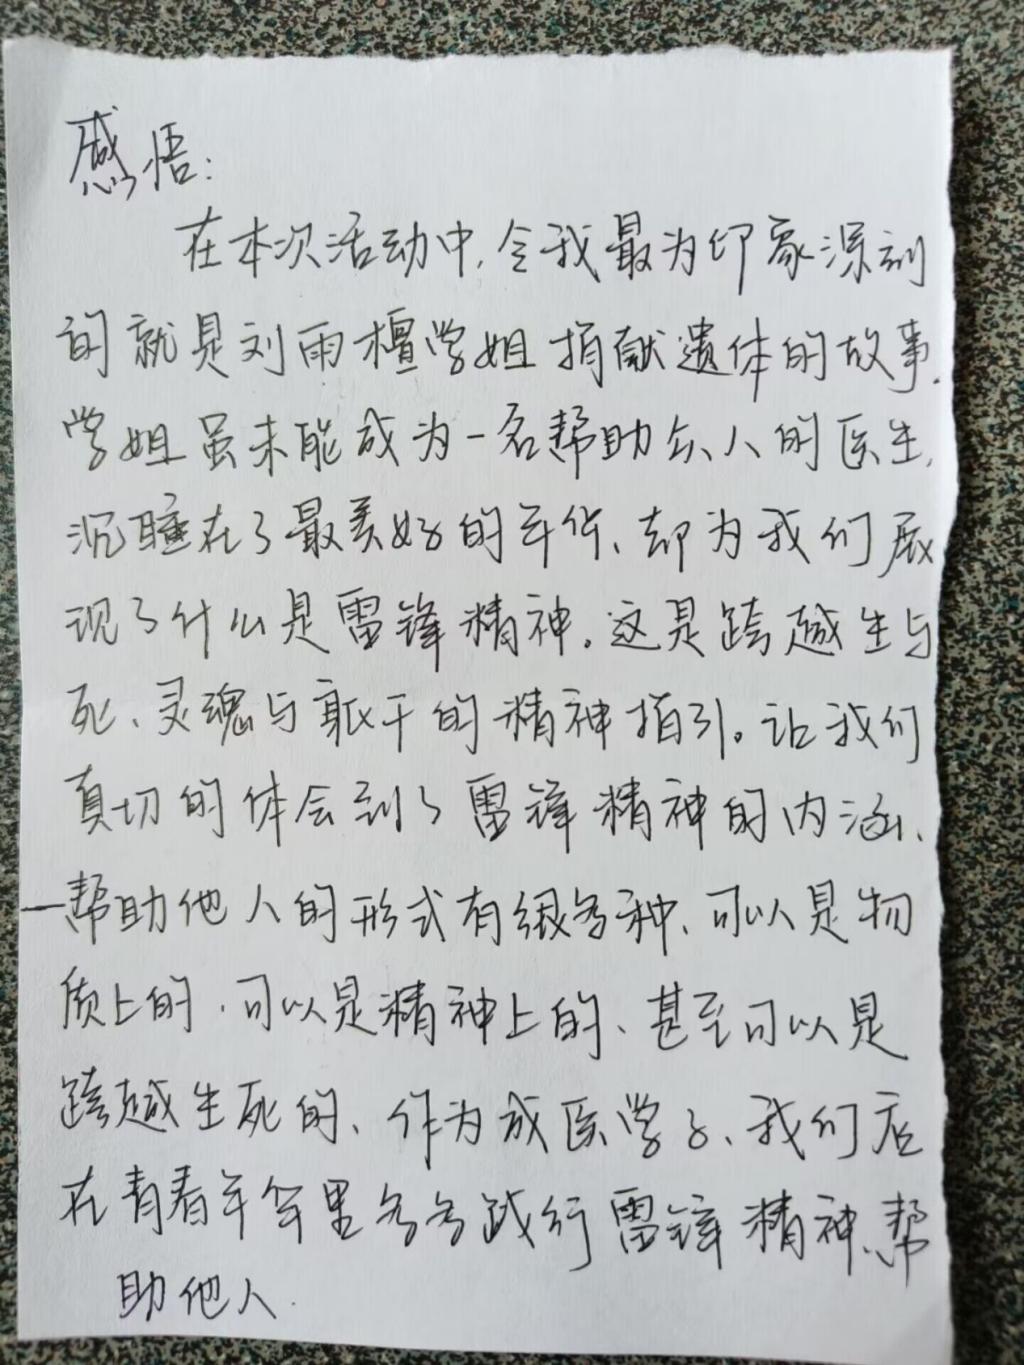 感悟：
在本次活动中，令我最为印象深刻
的就是刘雨檀学姐捐献遗体的故事.
学姐虽未能成为一名帮助众人的医生，
沉睡在了最美好的年华、却为我们展
现了什么是雷锋精神。这是跨越生与
死、灵魂与躯干的精神指引。让我们
真切的体会到了雷锋精神的内涵、
一帮助他人的形式有很多种、可以是物
质上的，可以是精神上的、甚至可以是
跨越生死的、作为成医学子、我们应
在青春年华里多多践行雷锋精神、帮
助他人.